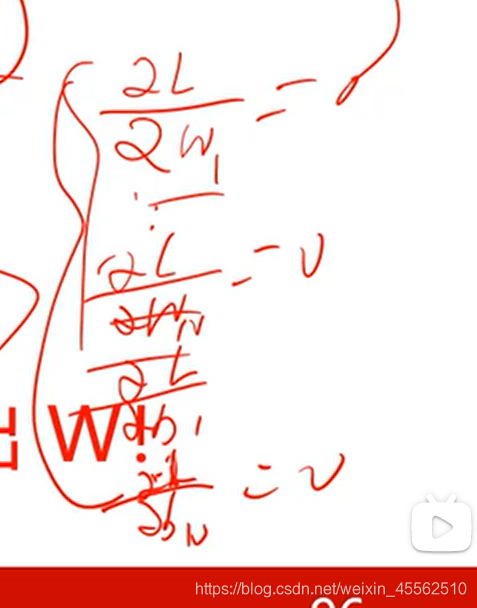 ∂L/∂W₁ = 0
⋮
∂L/∂W_N = 0
∂L/∂b₁
W
⋮
∂L/∂b_N = 0
https://blog.csdn.net/weixin_45562510